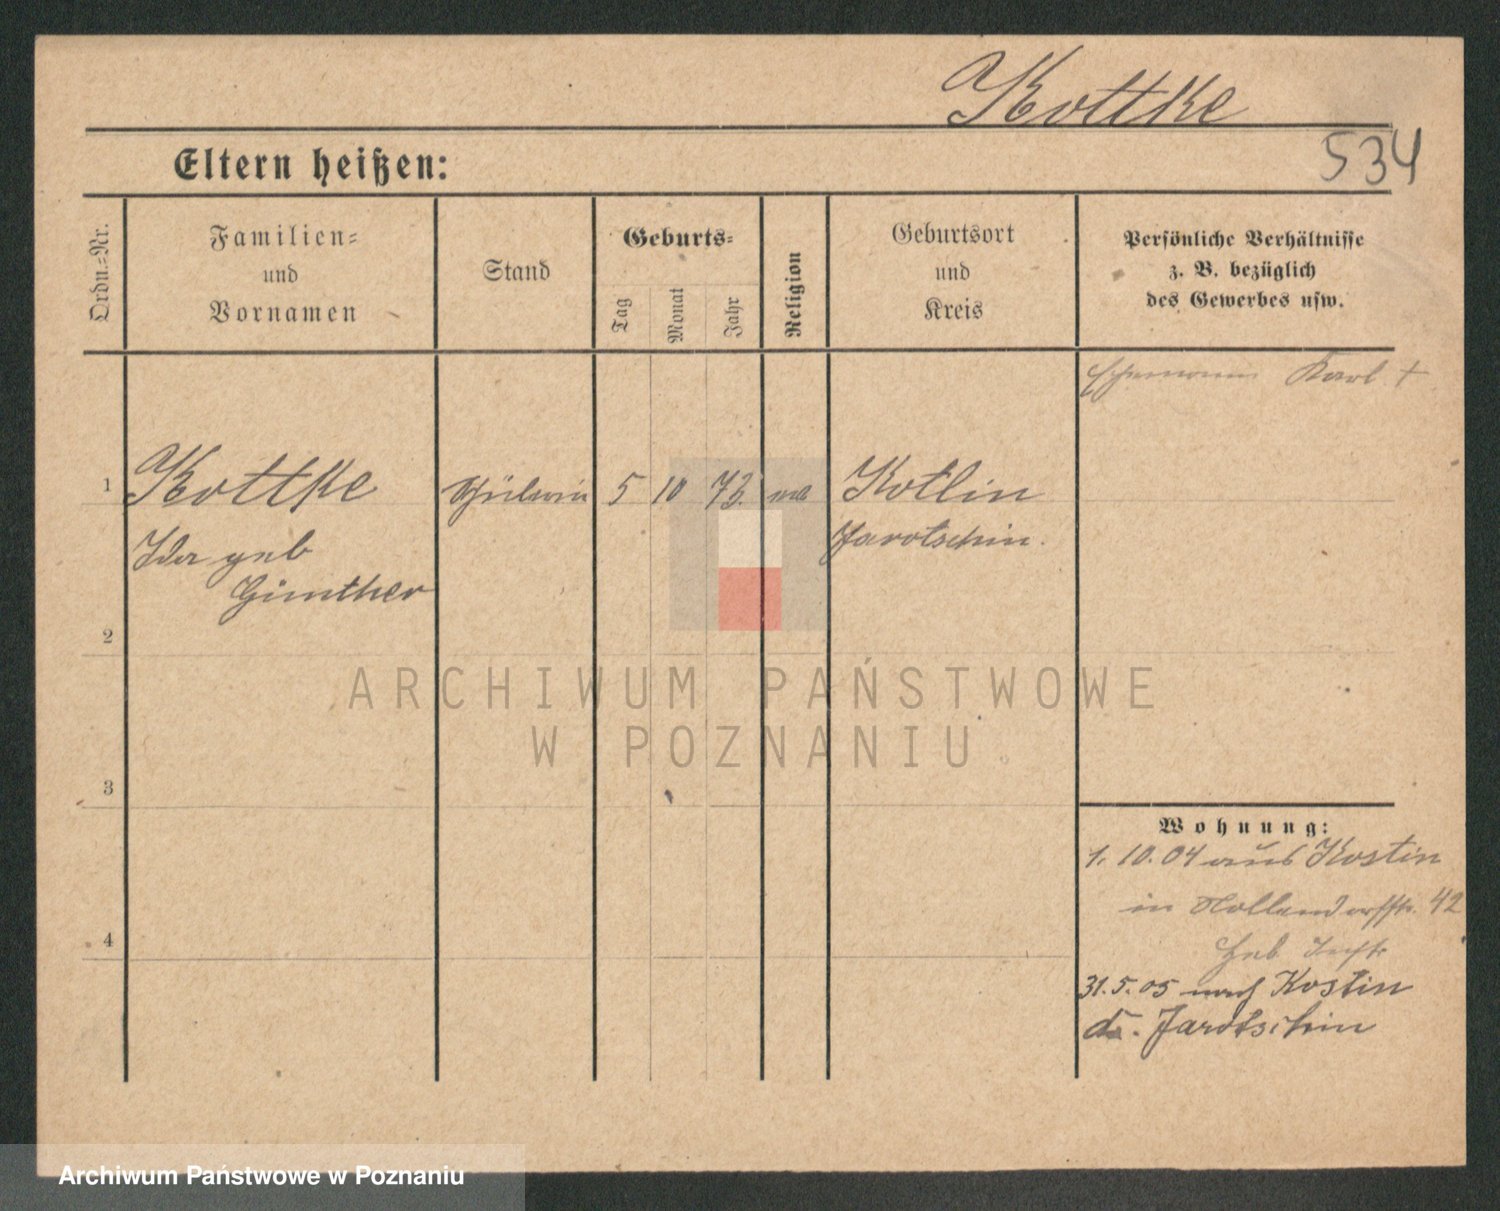 Kottke
534
Eltern heißen:
Ordn.-Nr.
Familien-
und
Vornamen
Stand
Geburts-
Tag
Monat
Jahr
Religion
Geburtsort
und
Kreis
Persönliche Verhältnisse
z. B. bezüglich
des Gewerbes usw.
Ehemann Karl +
1
Kottke
5 10 73
Kotlin
Ida geb
Günther
Jarotschin.
2
ARCHIWUM PAŃSTWOWE
W POZNANIU
3
Wohnung:
1. 10. 04 aus Kostin
in Nollendorfstr. 42
4
31. 5. 05 nach Kostin
Jarotschin
Archiwum Państwowe w Poznaniu